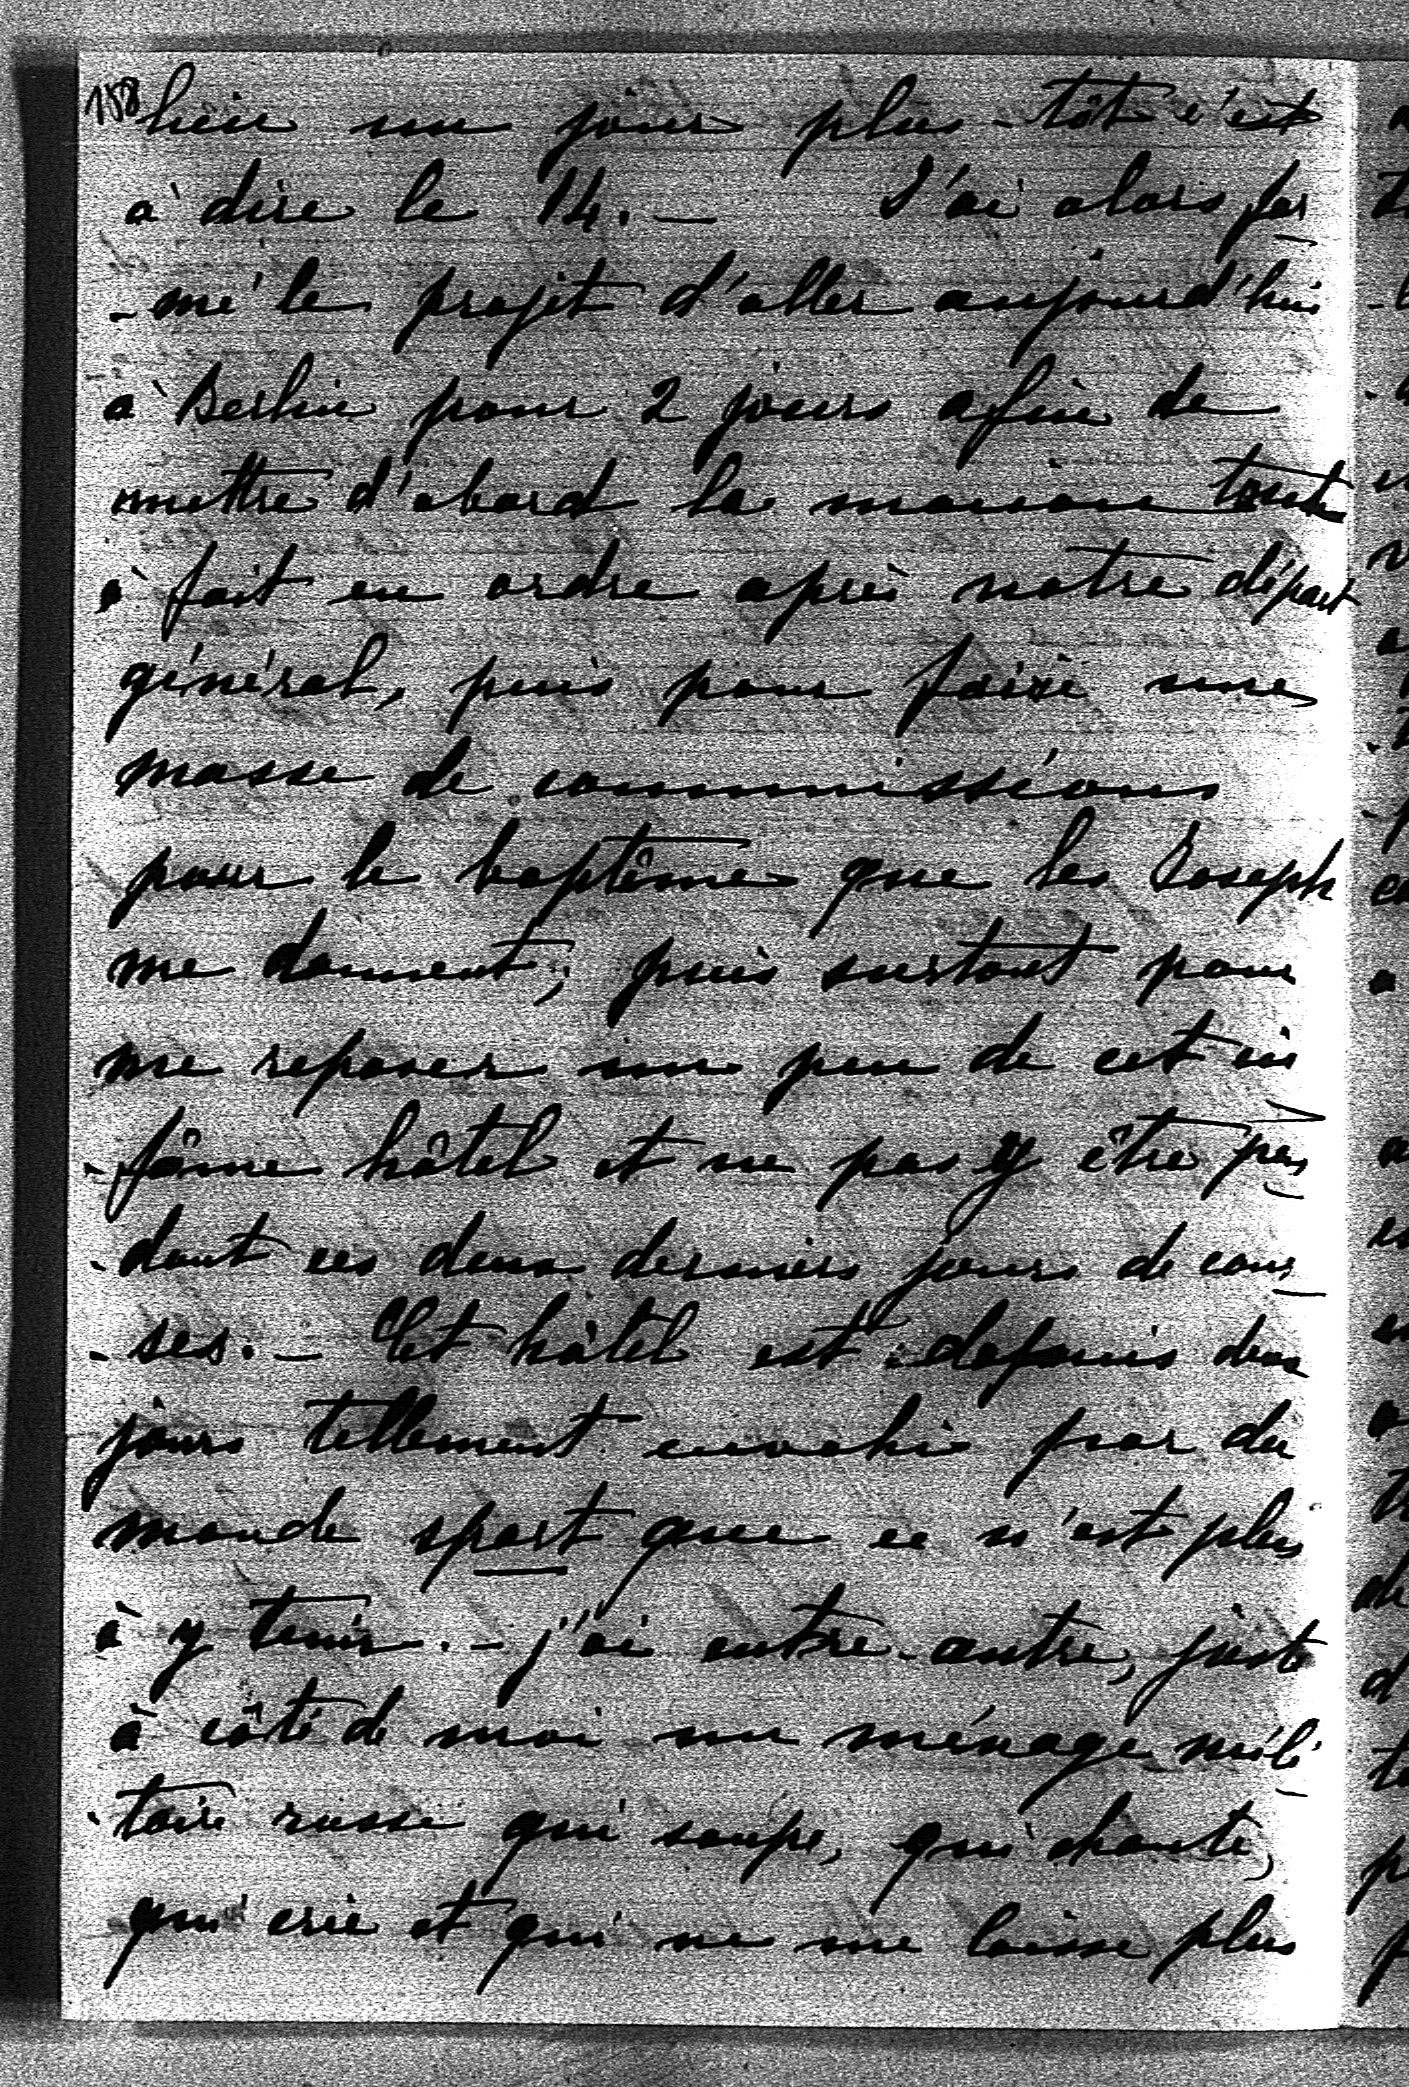 158
lieu un jour plus-tôt c'est
à dire le 14. — J'ai alors for
-mé le projet d'aller aujourd'hui
à Berlin pour 2 jours afin de
mettre d'abord la maison tout
à fait en ordre après notre départ
général, puis pour faire une
masse de commissions
pour le baptême que les Joseph
me donnent; puis surtout pour
me reposer un peu de cet in
-fâme hôtel et ne pas y être pen
-dant ces deux derniers jours de cour
-ses. — Cet hôtel est depuis deux
jours tellement envahi par du
monde sport que ce n'est plus
à y tenir. — j'ai entre-autre, juste
à côté de moi un ménage mili
-taire russe qui soupe, qui chante,
qui crie et qui ne me laisse plus